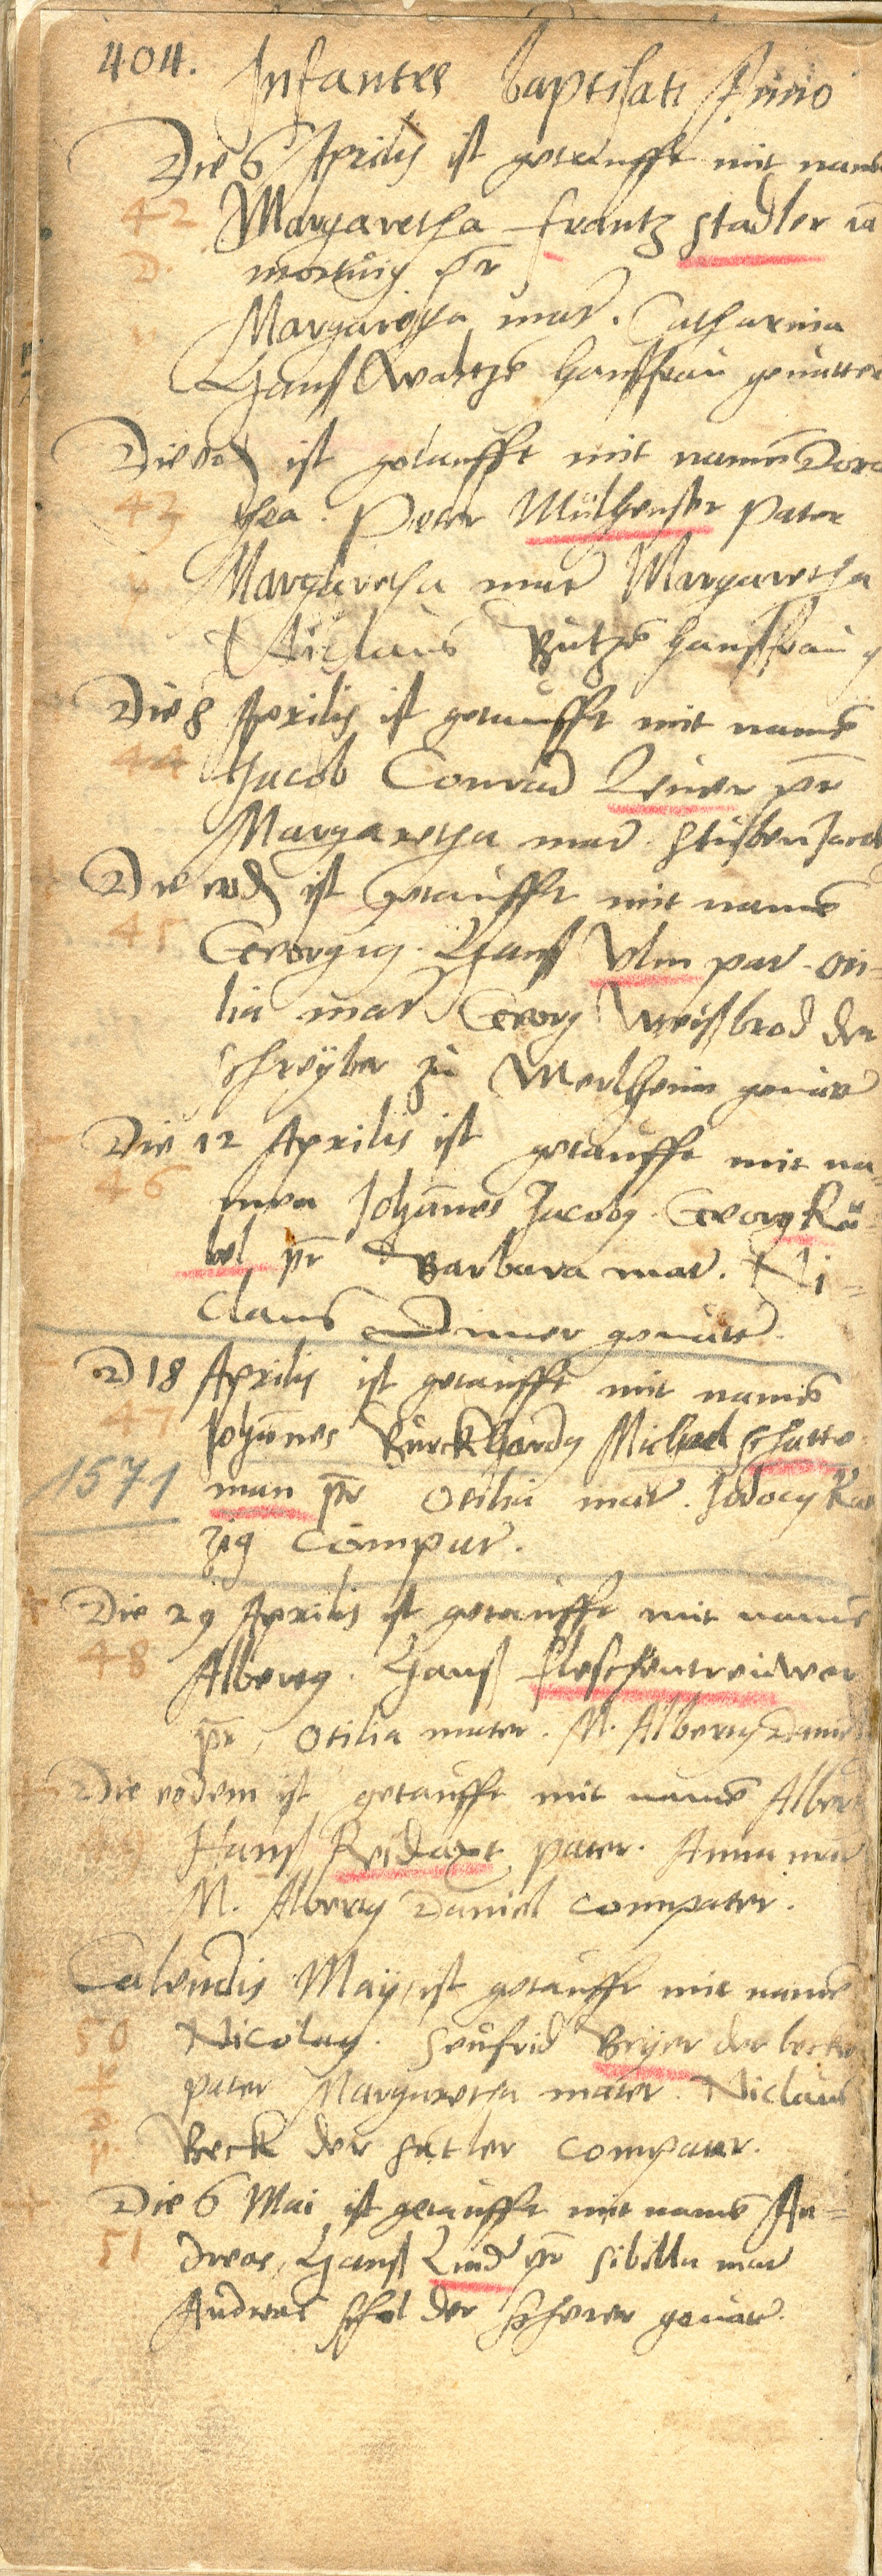 404. Infantes baptisati Anno
Die 6 Aprilis ist getaufft mit name
42 Margaretha frantz Stadler iā
D. mortuus pr
Margaretha mat. Catharina
Hanß Hanßfrau gevatter
Die eod ist getaufft mit namē Doro
43 thea. Peter Mülhenser pater
Margaretha mat Margaretha
Niclaus Butzē Hanßfrau g
Die 8 Aprilis ist getaufft mit namē
44 Jacob Conrad pr
Margaretha mat. Jacob
Die eod ist getaufft mit namē
45 Georgius. Hanß Ulm pat. Oti-
lia mat Georg Weißbrod der
schreyber zu gevat
Die 12 Aprilis ist getaufft mit na-
46 men Johānes Jacoby. Georg Kü-
bel pr Barbara mat. Ni-
claus gevatt.
D 18 Aprilis ist getaufft mit namē
47 Johānes Burckhardy Michael Schatte
1571 man pr Otilia mat. Jodocy
zig compat.
Die 29 Aprilis ist getaufft mit namē
48 Alberty. Hanß fleschentreiwer
pr, Otilia mater. M. Alberty Daniel
Die eodem ist getaufft mit namē Albert
49 Hanß Reidaxt pater. Anna mat
M. Alberty Daniel compater.
Calendis Maÿ, ist getaufft mit namē
50 Nicolaus. Seufrid Beÿer der becker
pater Margaretha mater. Niclaus
Beck der satler compater.
Die 6 Mai ist getaufft mit namē An-
51 dreas, Hanß Lind pr Sibilla mat
Andreas der scherer gevat.